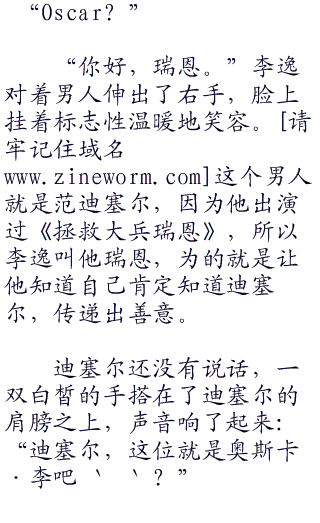 “Oscar？”
“你好，瑞恩。”李逸
对着男人伸出了右手，脸上
挂着标志性温暖地笑容。[请
牢记住域名
www.zineworm.com]这个男人
就是范迪塞尔，因为他出演
过《拯救大兵瑞恩》，所以
李逸叫他瑞恩，为的就是让
他知道自己肯定知道迪塞
尔，传递出善意。
迪塞尔还没有说话，一
双白皙的手搭在了迪塞尔的
肩膀之上，声音响了起来：
“迪塞尔，这位就是奥斯卡
·李吧｀｀？”